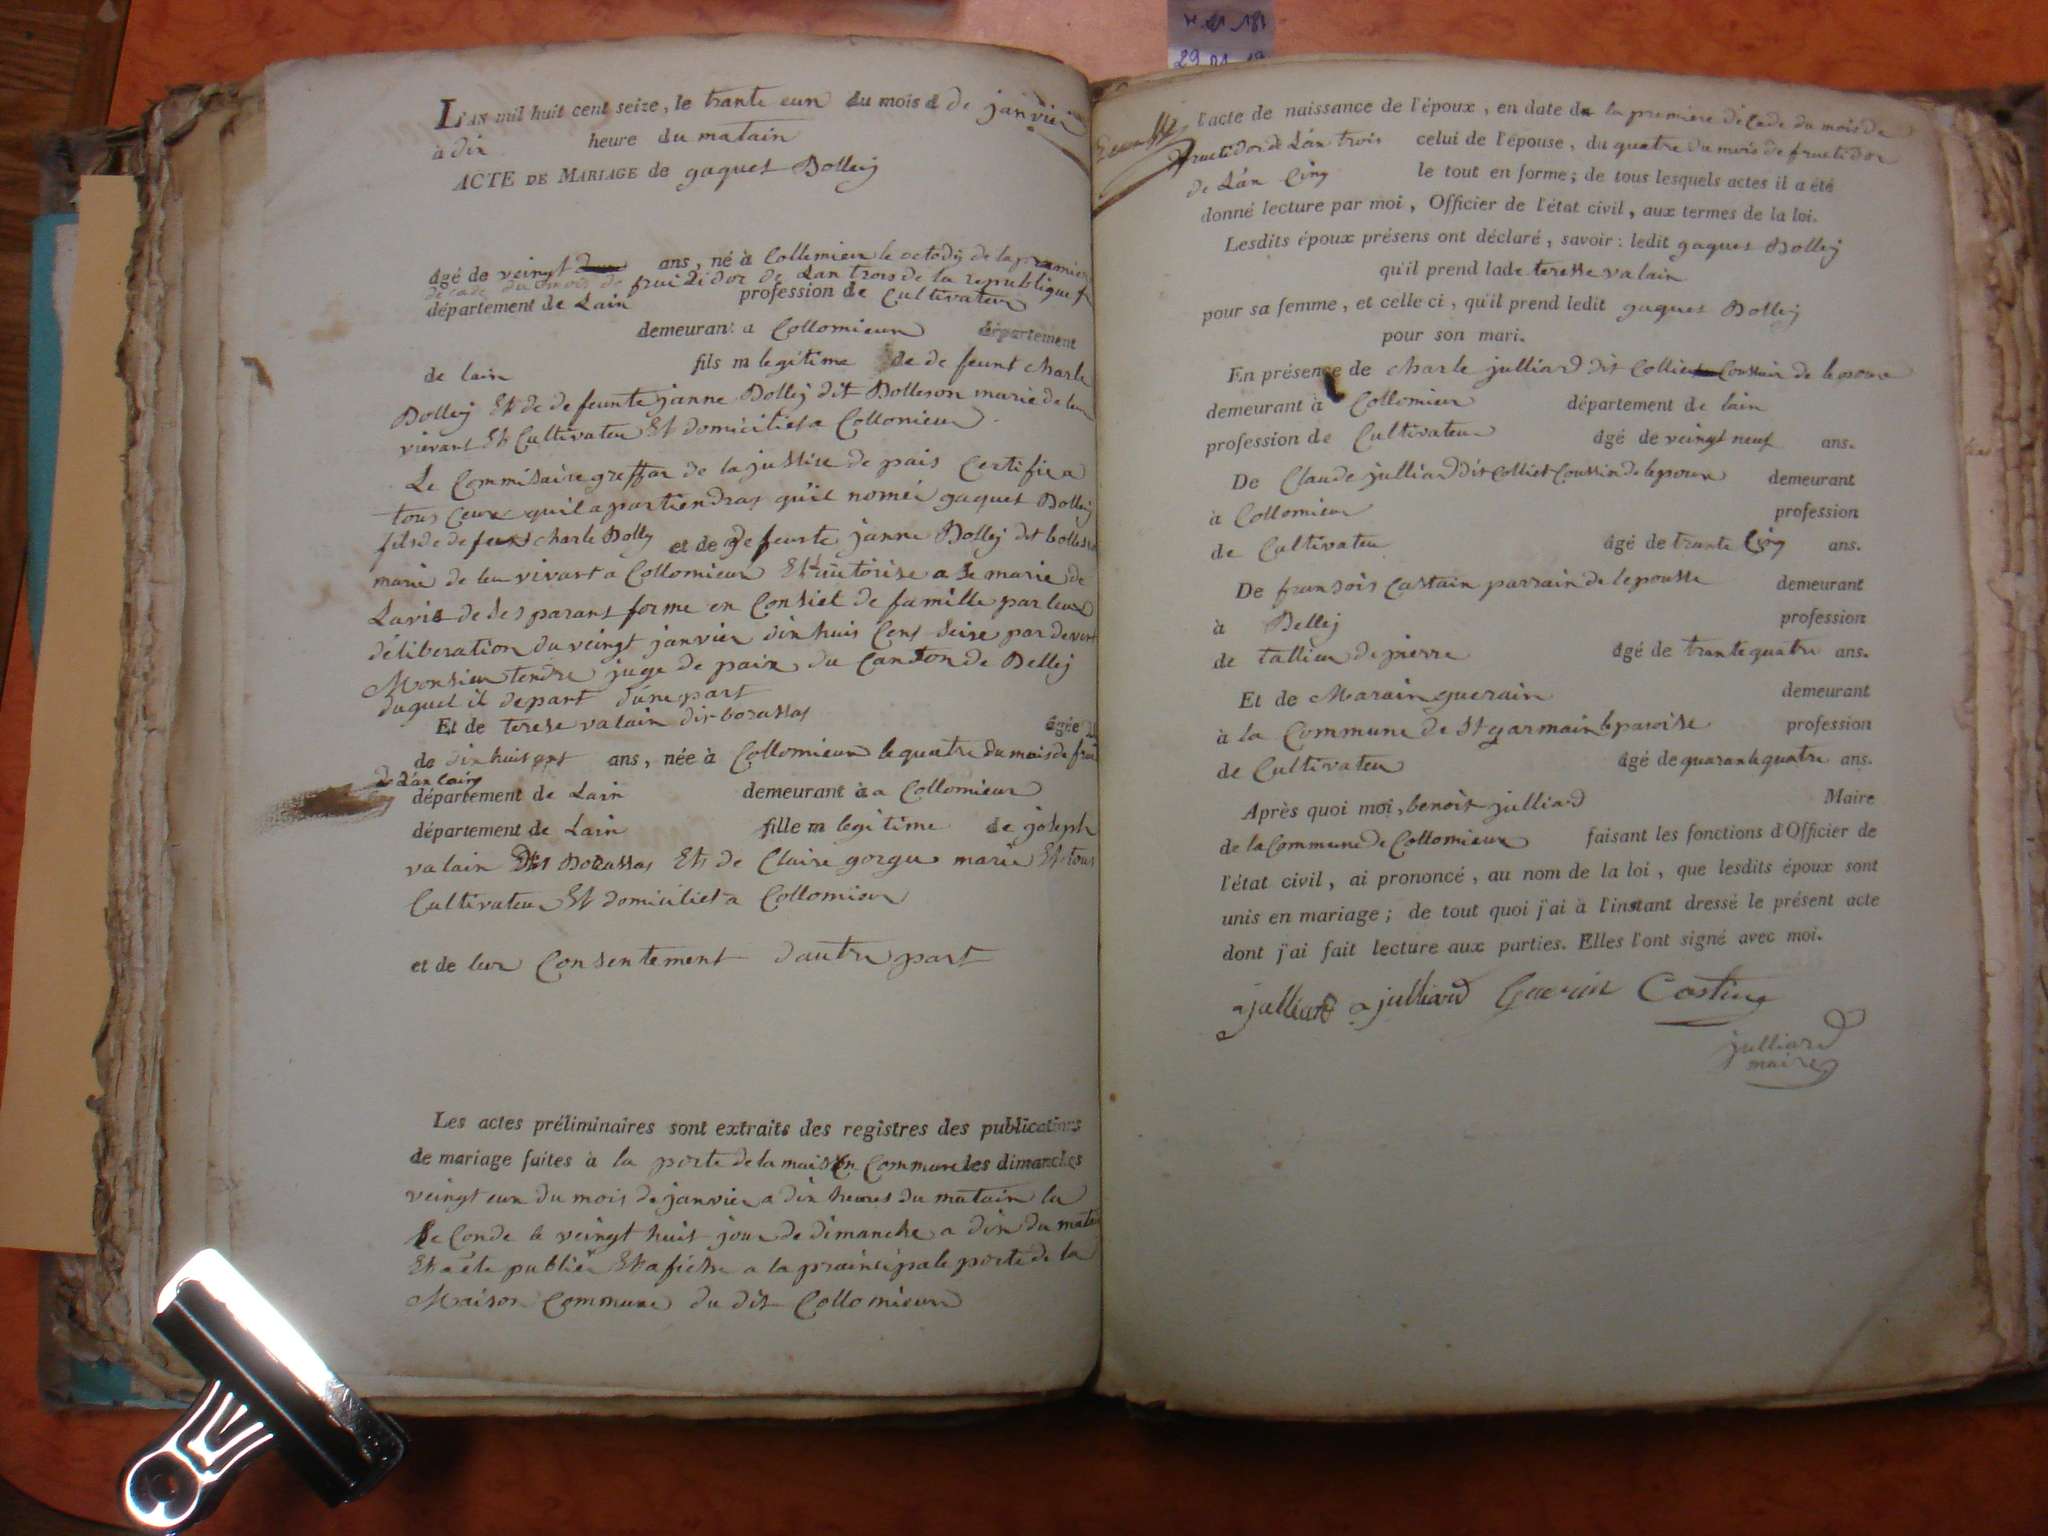 29 01 19
L'AN mil huit cent seize, le trante eun du mois d de janvier
à dix heure du matain
ACTE DE MARIAGE de gaques Dolley
âgé de veingt ans, né à Collomieu le octody de la premier
de cade du mois de fruictidor de Lan trois de la republique f
département de Lain profession de Cultivateur
demeurant a Collomieux département
de lain fils m legitime de de feunt charle
Dolley Et de de feunte janne Dolley dit Dolleson marie de leur
vievant Et Cultivateur Et domicilies a Collomieux.
Le Commisaire greffar de la justise de pais Certifie a
tous Ceux qu'il apartiendras qu'il nomér gaques Dolley
fils de de feunt charle Dolley et de de feunte janne Dolley dit
marie de leu vivant a Collomieux Et autorise a se marie de
Lavis de ses parans forme en Consiel de famille par leur
déliberation du veingt janvier dix huis Cens seise par devent
Monsieur tendre juge de paix du Canton de Belley
duquel il depart d'une part
Et de terese valain dit borassas âgée
de dix huis ans ans, née à Collomieux le quatre du mois de fru
de Lan Cainq
département de Lain demeurant à a Collomieux
département de Lain fille m legitime de joseph
valain dit Borassas Et de Claire gorgu marie Et tous
Cultivateur Et domicilies a Collomieux
et de leur Consentement d'autre part
Les actes préliminaires sont extraits des registres des publications
de mariage faites à la porte de la maison Commune les dimanches
veingt eun du mois de janvier a dix heures du matain la
se Conde le veingt huit jour de dimanche a dix du matin
Et a éte publiér Et afiche a la prainsipale porte de la
Maison Commune du dit Collomieux
l'acte de naissance de l'époux, en date du la premiere décade du mois de
fructidor de Lan trois celui de l'épouse, du quatre du mois de fructidor
de Lan Cinq le tout en forme; de tous lesquels actes il a été
donné lecture par moi, Officier de l'état civil, aux termes de la loi.
Lesdits époux présens ont déclaré, savoir: ledit gaques Dolley
qu'il prend lade teresse valain
pour sa femme, et celle ci, qu'il prend ledit gaques Dolley
pour son mari.
En présence de charle julliard dit Collies Coussin de lepoux
demeurant à Collomieu département de lain
profession de Cultivateur âgé de veingt neuf ans.
De Claude julliard dit Colliet Coussin de lepoux demeurant
à Collomieu profession
de Cultivateu âgé de trante Cinq ans.
De fransois Castain parrain de lepousse demeurant
à Belley profession
de tallieu de pierre âgé de trante quatre ans.
Et de Marain guerain demeurant
à la Commune de St garmain le paroise profession
de Cultivateu âgé de quarante quatre ans.
Après quoi moi, benoit julliard Maire
de la Commune de Collomieux faisant les fonctions d'Officier de
l'état civil, ai prononcé, au nom de la loi, que lesdits époux sont
unis en mariage; de tout quoi j'ai à l'instant dressé le présent acte
dont j'ai fait lecture aux parties. Elles l'ont signé avec moi.
julliard julliard Guerin Costing
julliard
maire